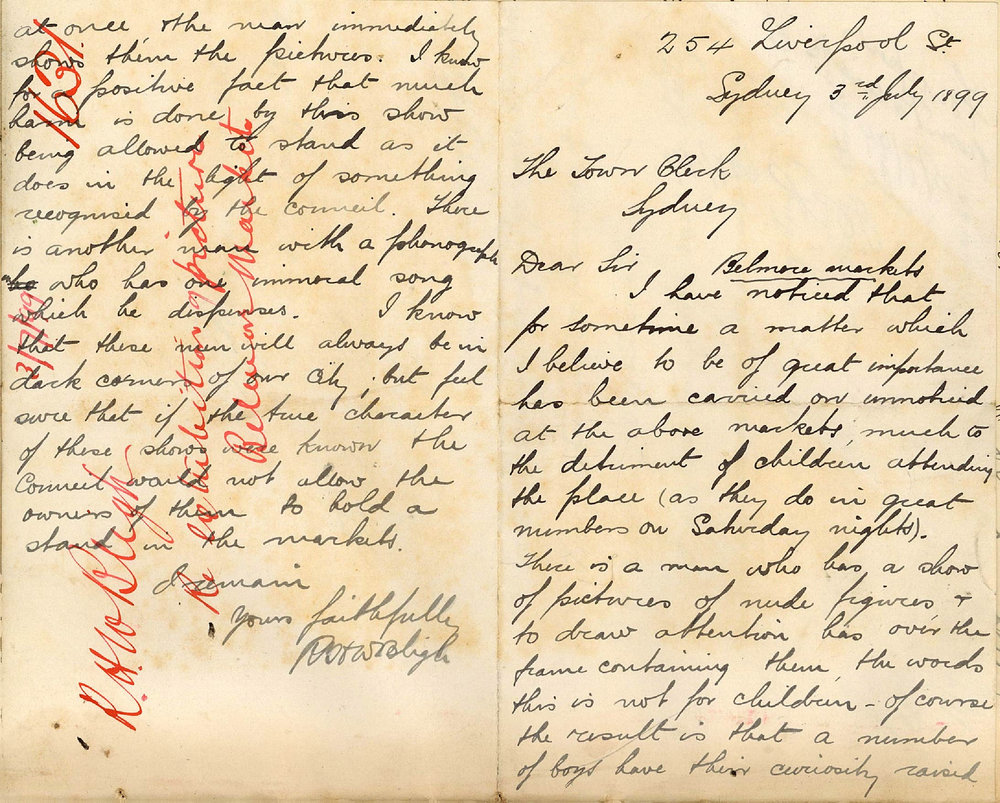 254 Liverpool St.
Sydney 3rd July 1899
The Town Clerk
Sydney
Dear Sir Belmore markets
I have noticed that
for sometime a matter which
I believe to be of great importance
has been carried on unnoticed
at the above markets, much to
the detriment of children attending
the place (as they do in great
numbers on Saturday nights).
There is a man who has a show
of pictures of nude figures &
to draw attention has over the
frame containing them, the words
this is not for children – of course
the result is that a number
of boys have their curiosity raised
at once, & the man immediately
shows them the pictures. I know
for a positive fact that much
harm is done by this show
being allowed to stand as it
does in the light of something
recognised by the council. There
is another man with a phonograph
who has one immoral song
which he dispenses. I know
that these men will always be in
dark corners of our City, but feel
sure that if the true character
of these shows were known the
Council would not allow the
owners of them to hold a
stand in the markets.
I remain
Yours faithfully
R H W Bligh
1631
3/7/99
R. H. W. Bligh
Re exhibition of pictures
Belmore Market.